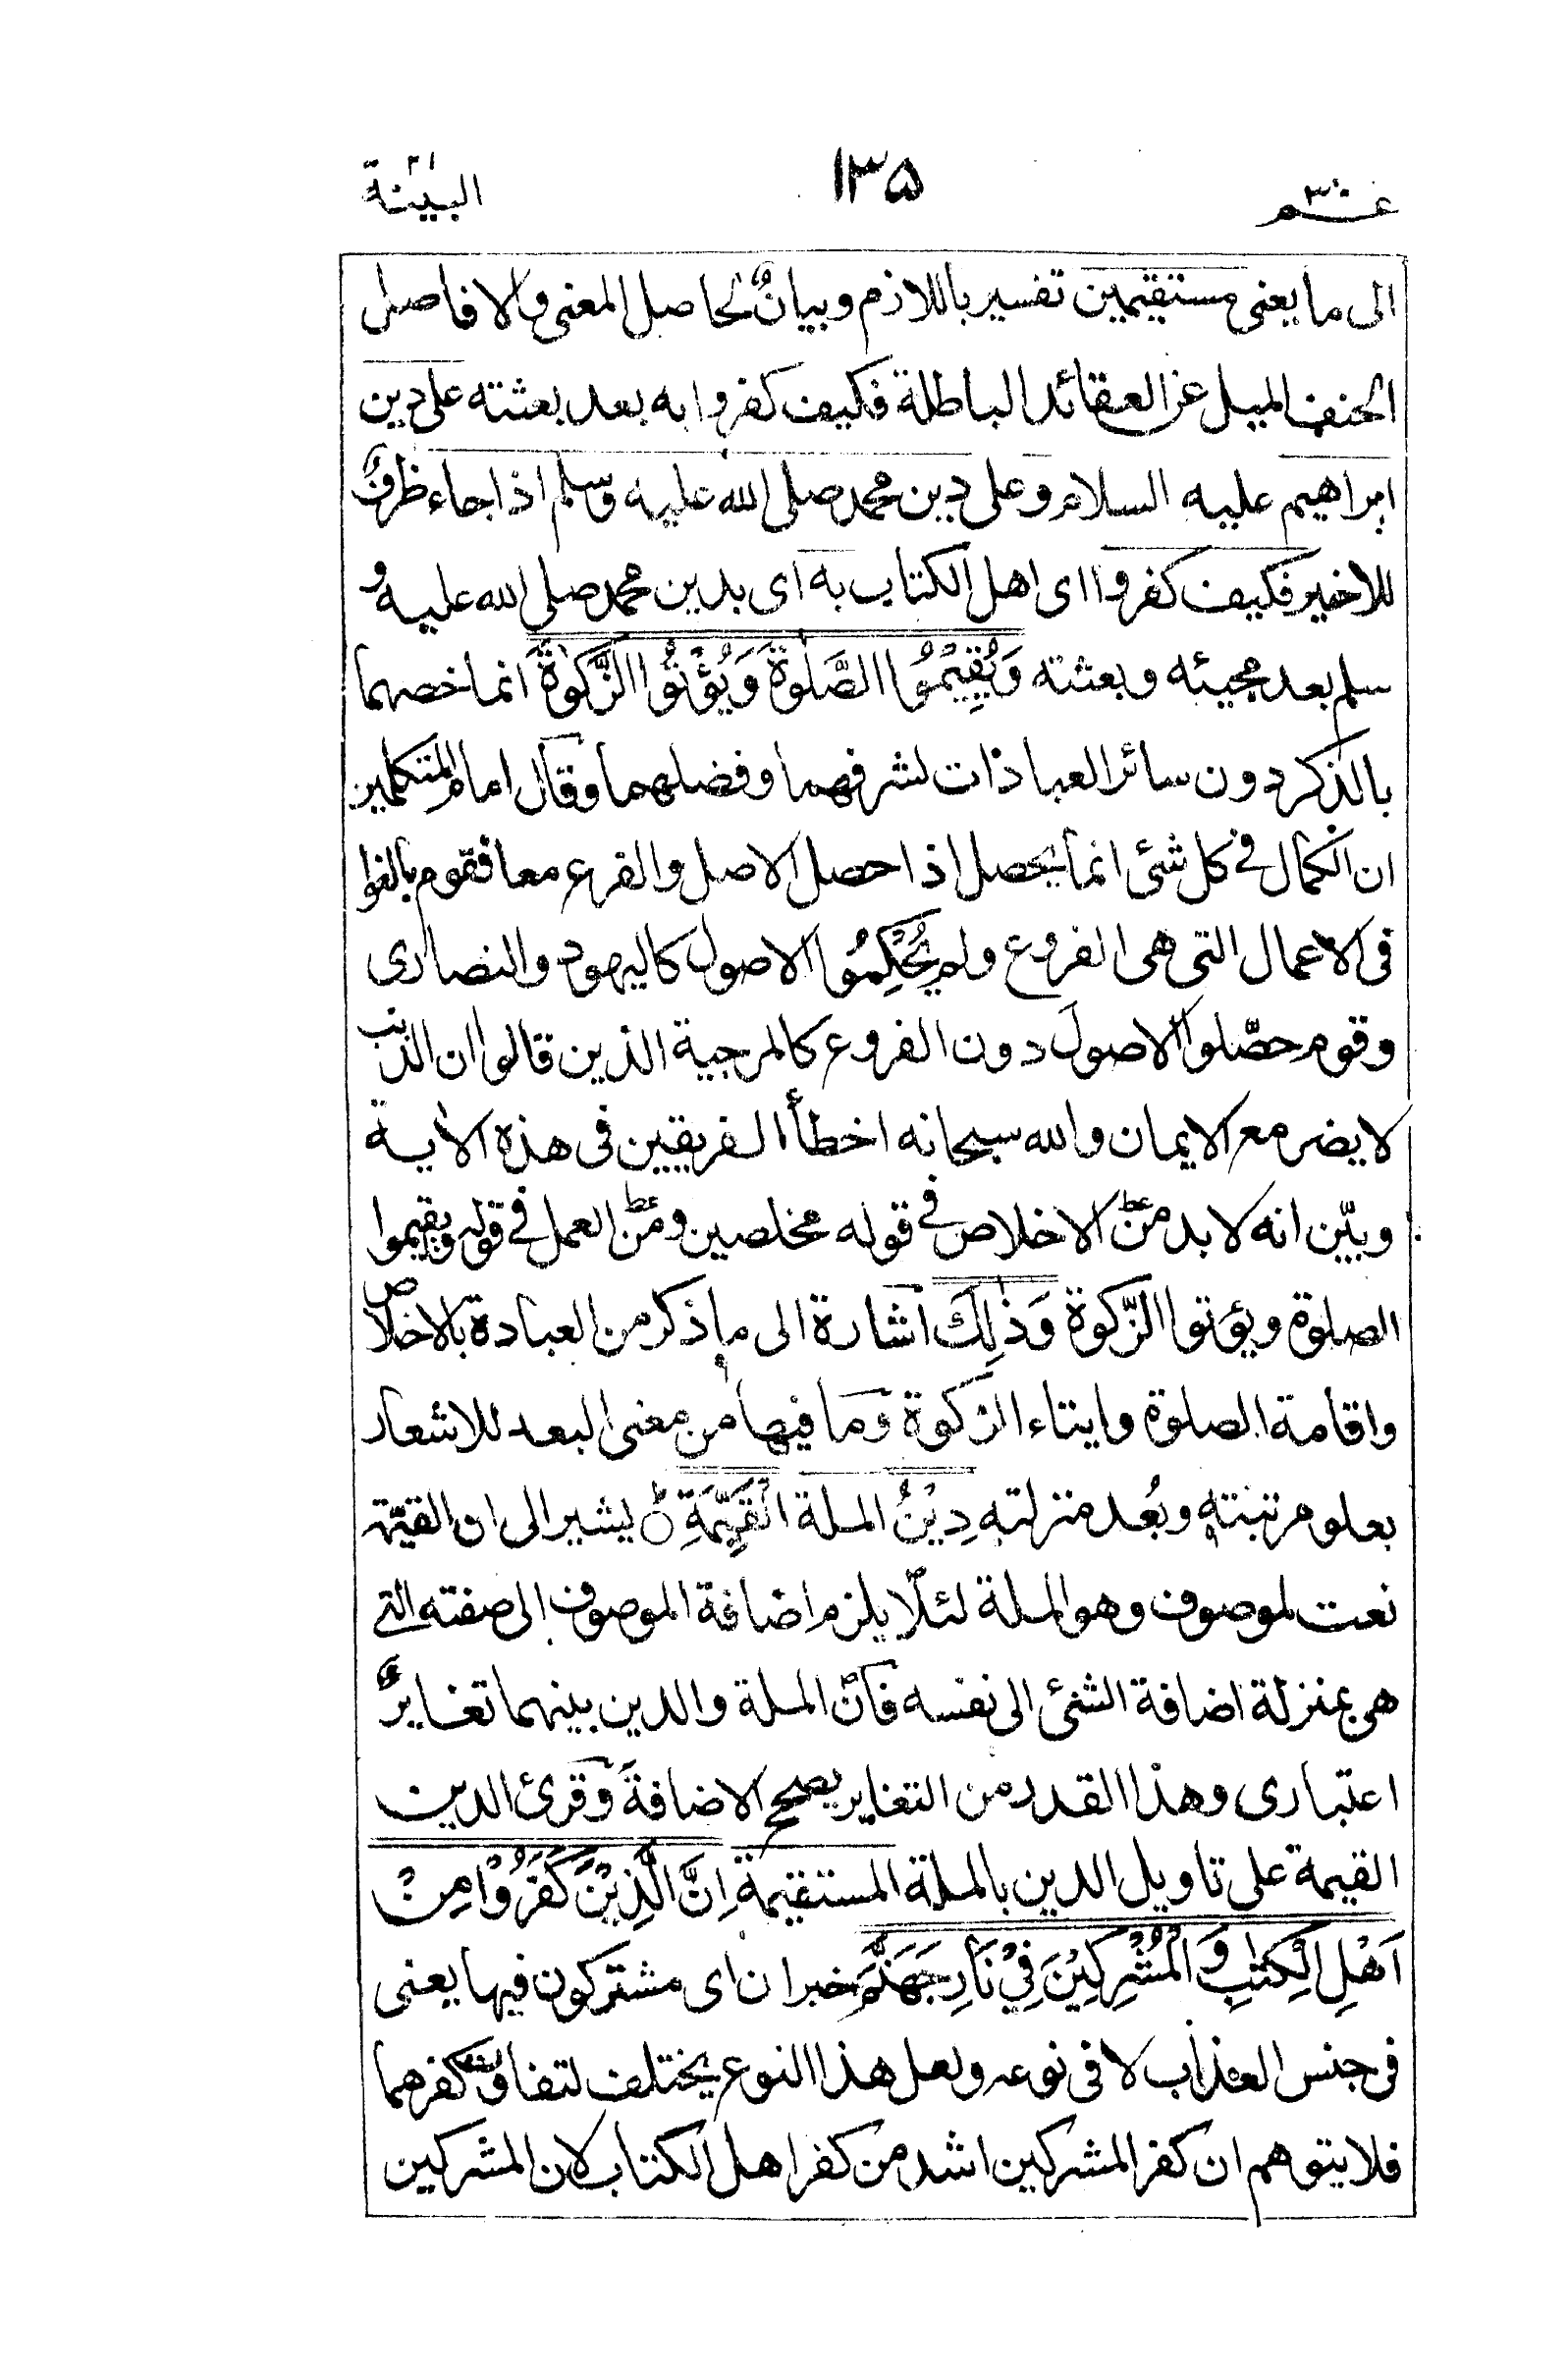 عم ٣٠
١٣٥
البينة
الى ما يعنى مستقيمين تفسير باللازم وبيانٌ لحاصل المعنى والا فاصل
الحنف الميل عن العقائد الباطلة فكيف كفروا به بعد بعثته على دين
ابراهيم عليه السلام وعلى دين محمد صلى الله عليه وسلم اذا جاء ظرفٌ
للاخير فكيف كفروا اى اهل الكتاب به اى بدين محمد صلى الله عليه و
سلم بعد مجيئه وبعثته وَيُقِيْمُوا الصَّلٰوةَ وَيُؤْتُوا الزَّكٰوةَ انما خصهما
بالذكر دون سائر العبادات لشرفهما وفضلهما وقال امام المتكلمين
ان الكمال فى كل شئ انما يحصل اذا حصل الاصل والفرع معا فقوم بالغوا
فى الاعمال التى هى الفروع ولم يُحْكِمُوا الاصول كاليهود والنصارى
وقوم حصّلوا الاصول دون الفروع كالمرجية الذين قالوا ان الذنب
لا يضر مع الايمان والله سبحانه اخطأ الفريقين فى هذه الاية
وبيّن انه لا بد من الاخلاص فى قوله مخلصين ومن العمل فى قوله ويقيموا
الصلوة ويؤتوا الزّكوة وَذٰلِكَ اشارة الى ما ذكر من العبادة بالاخلاص
واقامة الصلوة وايتاء الزكوة وما فيها من معنى البعد للاشعار
بعلو مرتبته وبُعد منزلته دِيْنُ الملة الْقَيِّمَةِ يشير الى ان القيّمة
نعت لموصوف وهو الملة لئلّا يلزم اضافة الموصوف الى صفته التى
هى بمنزلة اضافة الشئ الى نفسه فانّ الملة والدين بينهما تغايرٌ
اعتبارى وهذا القدر من التغاير يصحح الاضافة وقرئ الدين
القيمة على تاويل الدين بالملة المستقيمة اِنَّ الَّذِيْنَ كَفَرُوْا مِنْ
اَهْلِ الْكِتٰبِ وَ الْمُشْرِكِيْنَ فِيْ نَارِ جَهَنَّمَ خبر ان اى مشتركون فيها يعنى
فى جنس العذاب لا فى نوعه ولعل هذا النوع يختلف لتفاوت كفرهما
فلا يتوهم ان كفر المشركين اشد من كفر اهل الكتاب لان المشركين